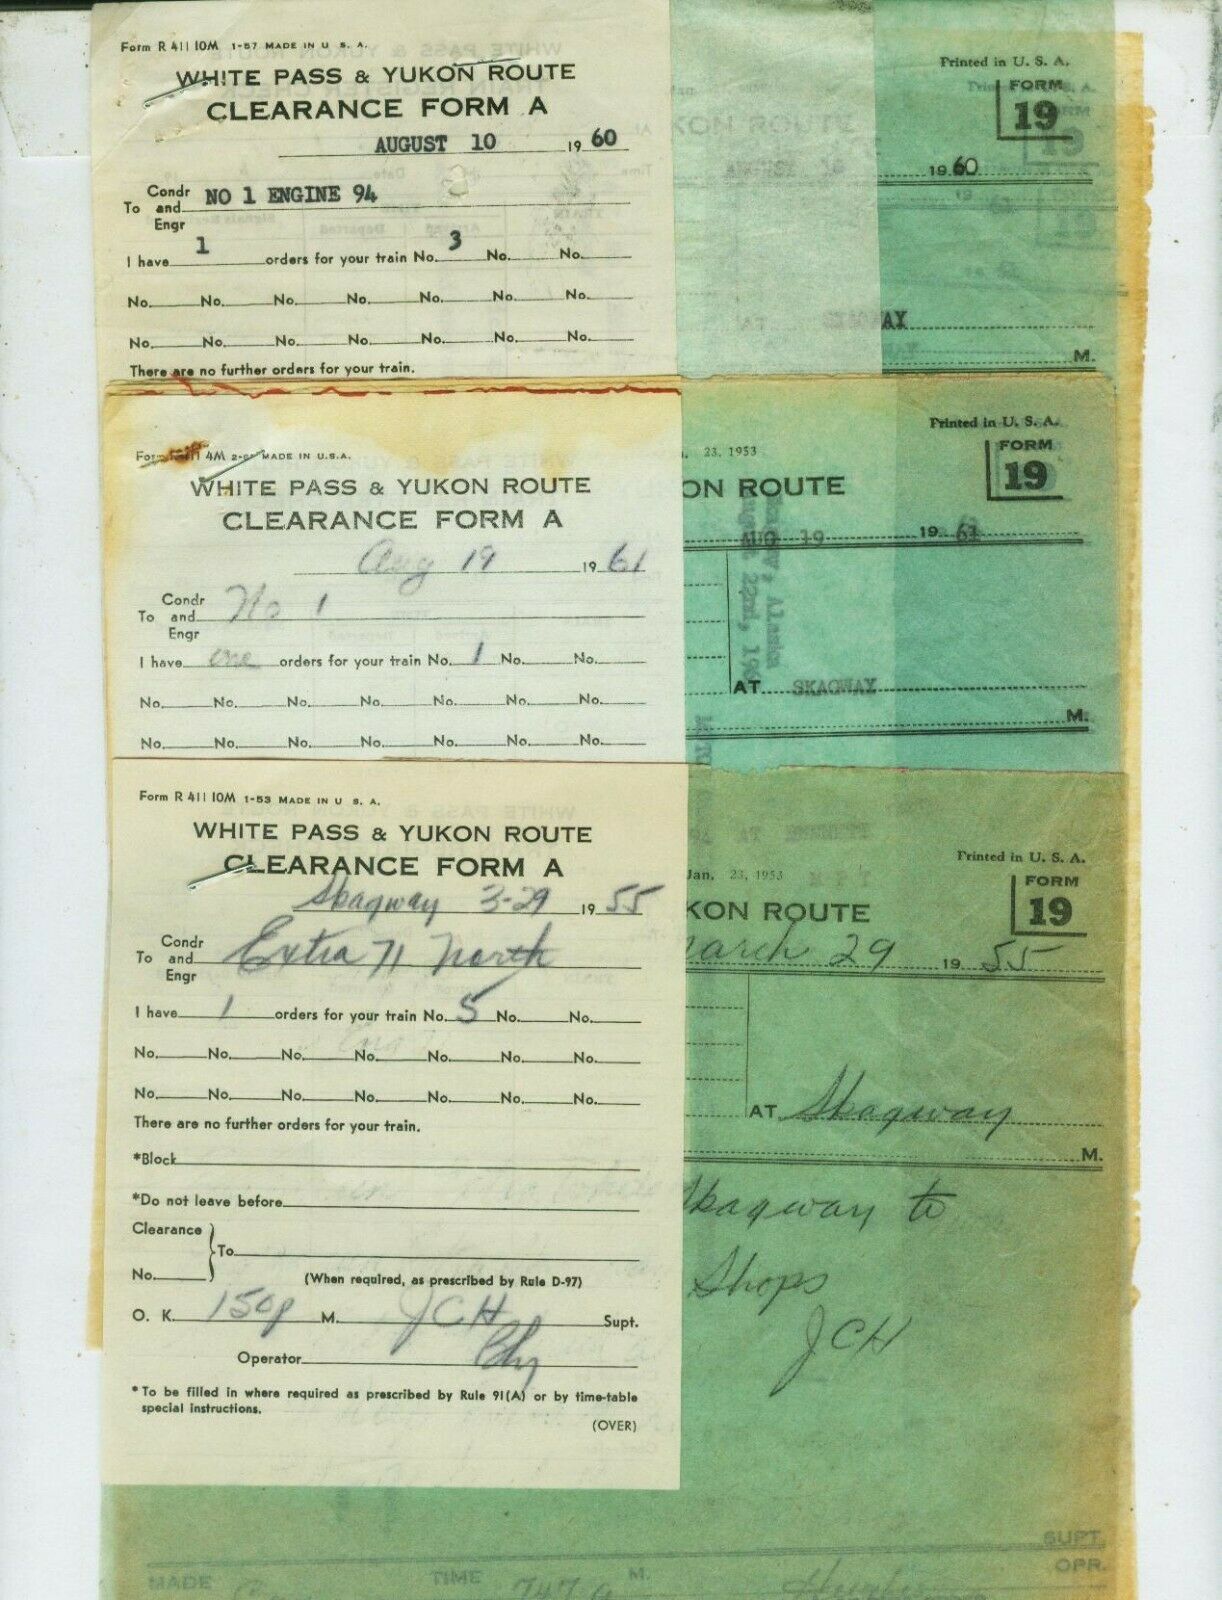 Form R 411 10M 1-57 MADE IN U S. A.
WHITE PASS & YUKON ROUTE
CLEARANCE FORM A
AUGUST 10 19 60
To Condr and Engr NO 1 ENGINE 94
I have 1 orders for your train No. 3 No. No.
No. No. No. No. No. No. No.
No. No. No. No. No. No. No.
There are no further orders for your train.
Printed in U. S. A.
FORM
19
19 60
AY
M.
4M MADE IN U.S.A.
WHITE PASS & YUKON ROUTE
CLEARANCE FORM A
Aug 19 19 61
To Condr and Engr No 1
I have one orders for your train No. 1 No. No.
No. No. No. No. No. No. No.
No. No. No. No. No. No. No.
23, 1953
Printed in U. S. A.
FORM
19
ON ROUTE
19 19 61
AT SKAGWAY
M.
Form R 411 10M 1-53 MADE IN U S. A.
WHITE PASS & YUKON ROUTE
CLEARANCE FORM A
Skagway 3-29 19 55
To Condr and Engr Extra 71 North
I have 1 orders for your train No. 5 No. No.
No. No. No. No. No. No. No.
No. No. No. No. No. No. No.
There are no further orders for your train.
*Block
*Do not leave before
Clearance
No. } To
(When required, as prescribed by Rule D-97)
O. K. 150p M. JCH Supt.
Operator
*To be filled in where required as prescribed by Rule 91(A) or by time-table
special instructions.
(OVER)
Jan. 23, 1953
Printed in U. S. A.
FORM
19
KON ROUTE
arch 29 19 55
AT Skagway
M.
Skagway to
Shops
JCH
SUPT.
OPR.
MADE TIME 747 A M.